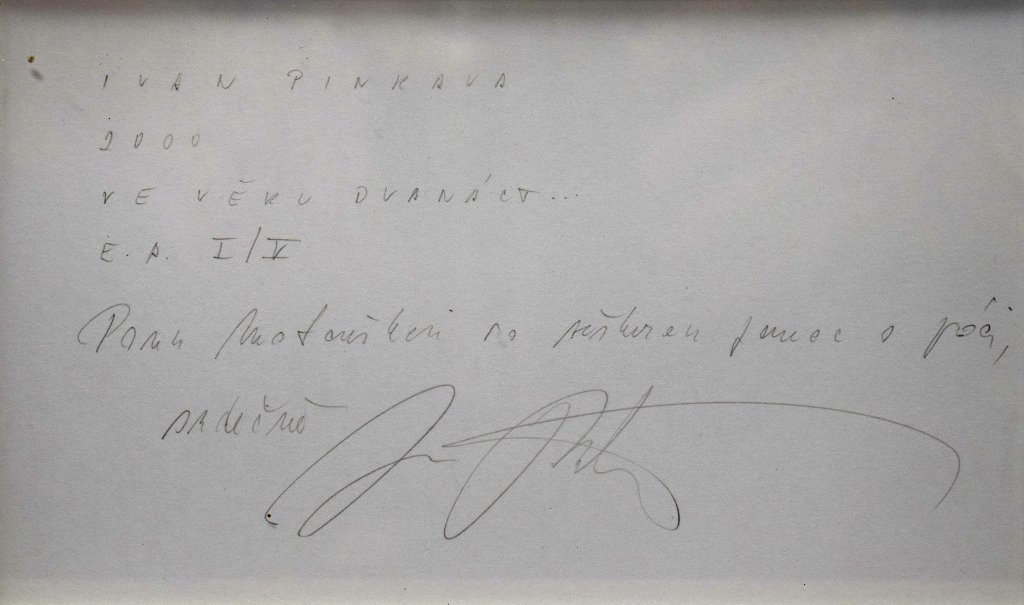 IVAN PINKAVA
2000
VE VĚKU DVANÁCT...
E.A. I/V
Panu Matouškovi za veškerou pomoc a péči,
srdečně